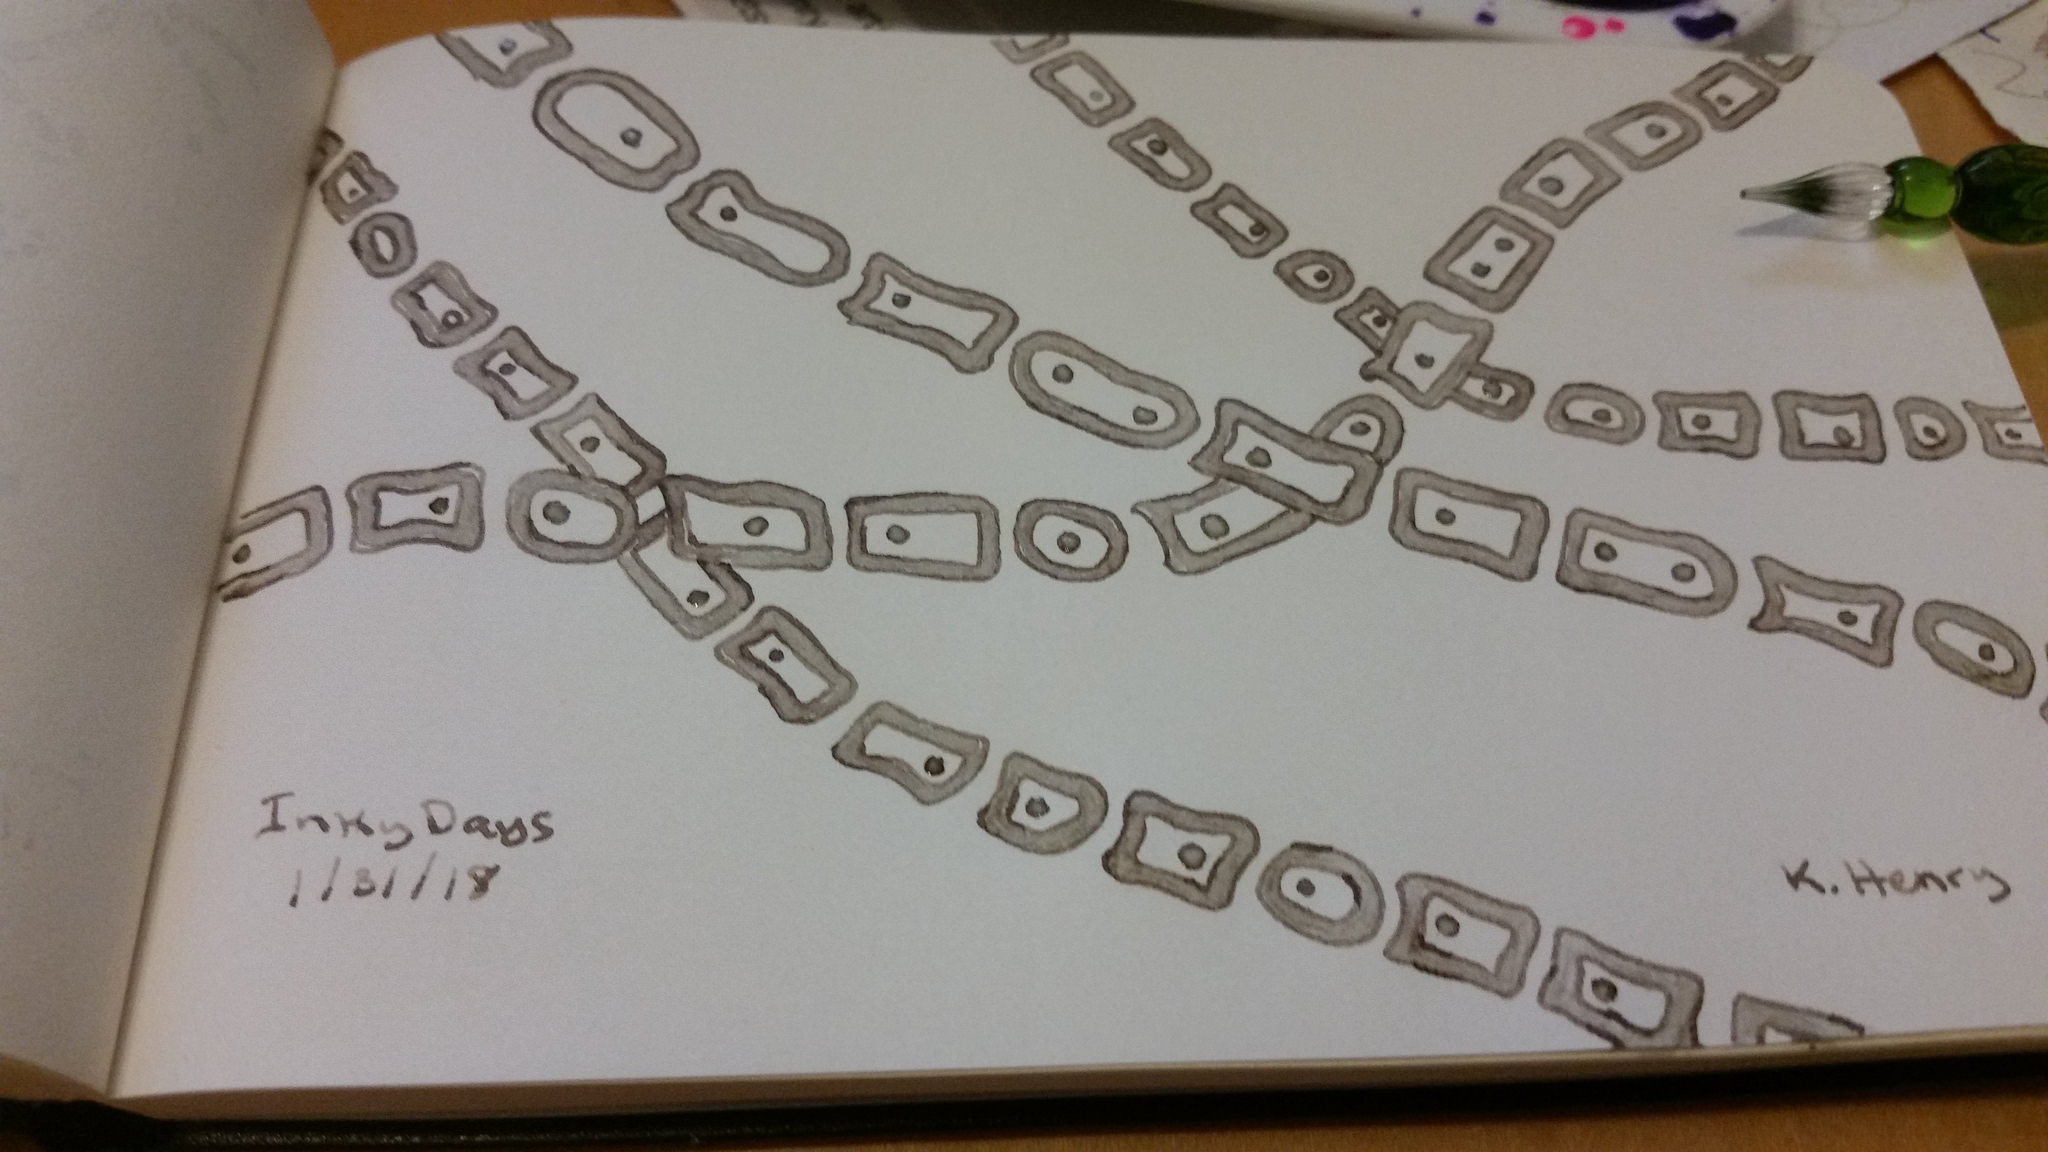 Inky Days
1/31/18
K. Henry